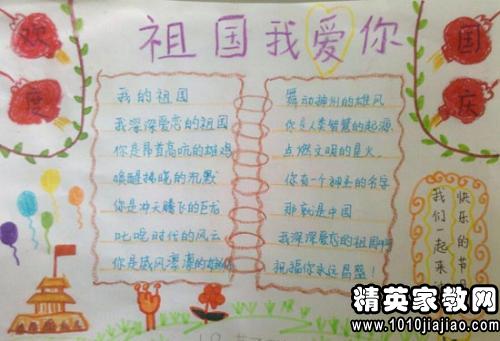 祖国我爱你
欢
度
国
庆
我的祖国
我深深爱恋的祖国
你是昂首高吭的雄鸡
唤醒拂晓的沉默
你是冲天腾飞的巨龙
叱咤时代的风云
你是威风凛凛的
舞动神州的雄风
你是人类智慧的起源
点燃文明的星火
你有一个神圣的名字
那就是中国
我深深爱恋的祖国啊
祝福你永远昌盛！
快乐的节
我们一起来
精英家教网
www.1010jiajiao.com